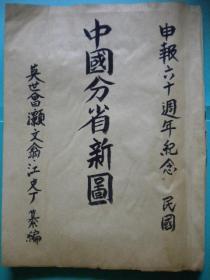 申報六十週年紀念 民國
中國分省新圖
英世曾灝文翁江文丁 纂編